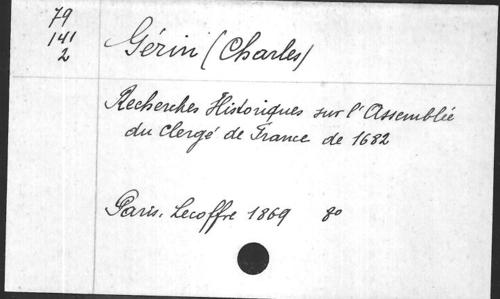 79
141
2
Gérin (Charles)
Recherches Historiques sur l'Assemblée
du Clergé de France de 1682
Paris. Lecoffre 1869 8o